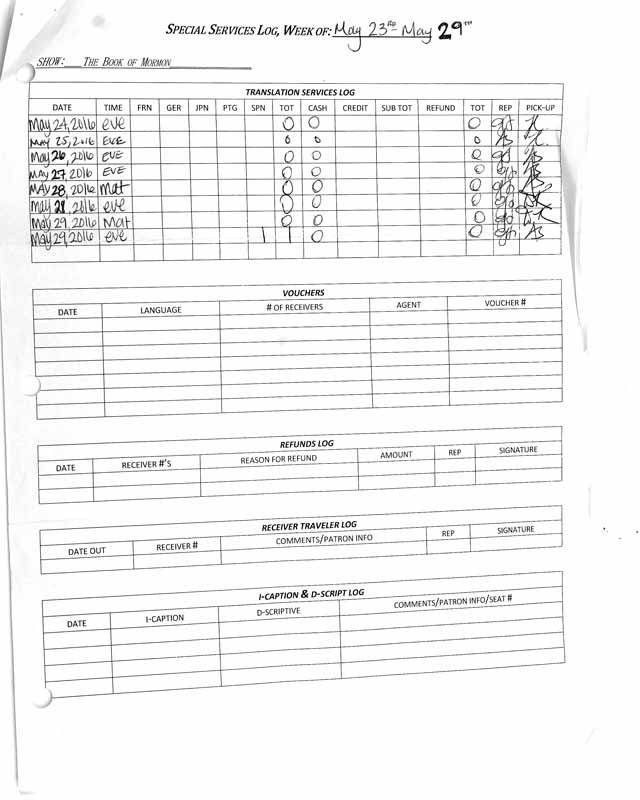 SPECIAL SERVICES LOG, WEEK OF: May 23rd - May 29th
SHOW: THE BOOK OF MORMON
TRANSLATION SERVICES LOG
DATE TIME FRN GER JPN PTG SPN TOT CASH CREDIT SUB TOT REFUND TOT REP PICK-UP
May 24, 2016 eve 0 0 0
MAY 25, 2016 EVE 0 0 0 AS
May 26, 2016 EVE 0 0 0 AS
MAY 27, 2016 EVE 0 0 0 AS
MAY 28, 2016 Mat 0 0 0 AS
May 28, 2016 eve 0 0 0
May 29, 2016 Mat 0 0 0
May 29, 2016 eve 1 1 0 0 AS
VOUCHERS
DATE LANGUAGE # OF RECEIVERS AGENT VOUCHER #
REFUNDS LOG
DATE RECEIVER #'S REASON FOR REFUND AMOUNT REP SIGNATURE
RECEIVER TRAVELER LOG
DATE OUT RECEIVER # COMMENTS/PATRON INFO REP SIGNATURE
I-CAPTION & D-SCRIPT LOG
DATE I-CAPTION D-SCRIPTIVE COMMENTS/PATRON INFO/SEAT #